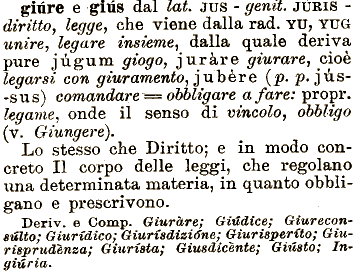 giúre e giús dal lat. JUS - genit. JŪRIS -
diritto, legge, che viene dalla rad. YU, YUG
unire, legare insieme, dalla quale deriva
pure júgum giogo, juràre giurare, cioè
legarsi con giuramento, jubère (p. p. jús-
-sus) comandare = obbligare a fare: propr.
legame, onde il senso di vincolo, obbligo
(v. Giungere).
Lo stesso che Diritto; e in modo con-
creto Il corpo delle leggi, che regolano
una determinata materia, in quanto obbli-
gano e prescrivono.
Deriv. e Comp. Giuràre; Giúdice; Giurecon-
súlto; Giurídico; Giurisdizióne; Giurisperíto; Giu-
risprudènza; Giurísta; Giusdicènte; Giústo; In-
giúria.